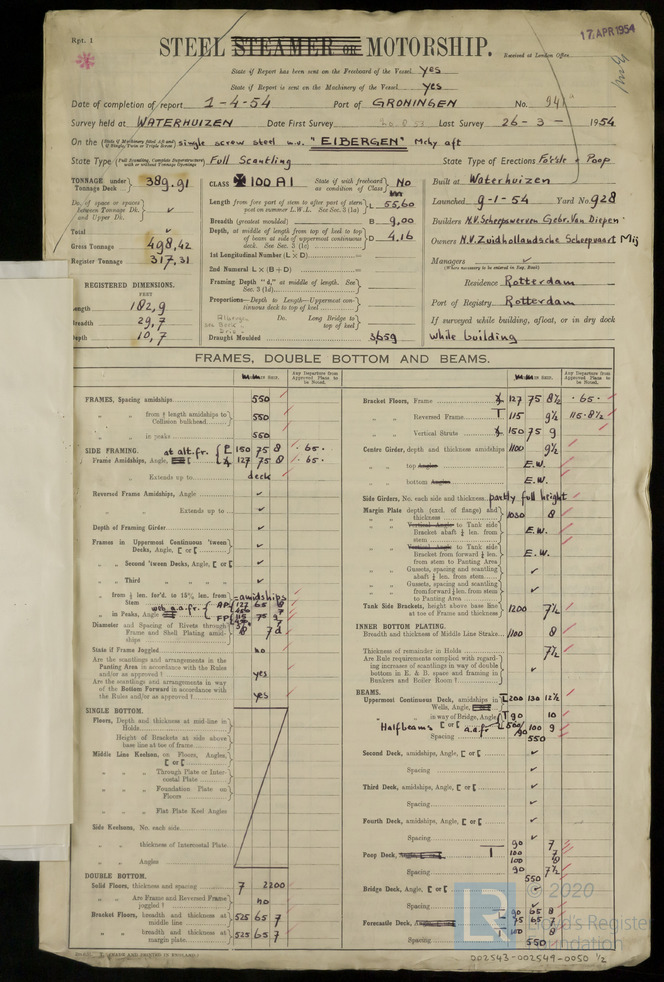 Rpt. 1
17 APR 1954
STEEL STEAMER OR MOTORSHIP.
Received at London Office
State if Report has been sent on the Freeboard of the Vessel yes
State if Report is sent on the Machinery of the Vessel yes
Date of completion of report 1-4-54 Port of GRONINGEN No. 941
Survey held at WATERHUIZEN Date First Survey 20.8.53 Last Survey 26-3- 1954
On the single screw steel m.v. "EIBERGEN" Mchy aft
State Type Full Scantling State Type of Erections Fo'c'sle + Poop
TONNAGE under Tonnage Deck 389.91
Do. of space or spaces between Tonnage Dk. and Upper Dk.
Total
Gross Tonnage 498,42
Register Tonnage 317,31
REGISTERED DIMENSIONS.
FEET
Length 182,9
Breadth 29,7
Depth 10,7
CLASS 100 A1 State if with freeboard as condition of Class No
Length from fore part of stem to after part of stern post on summer L.W.L. See Sec. 3 (1a) L 55,60
Breadth (greatest moulded) B 9,00
Depth, at middle of length from top of keel to top of beam at side of uppermost continuous deck. See Sec. 3 (1c) D 4.16
1st Longitudinal Number (L × D)
2nd Numeral L × (B + D)
Framing Depth "d," at middle of length. See Sec. 3 (1d)
Proportions—Depth to Length—Uppermost continuous deck to top of keel
Do. Long Bridge to top of keel
Draught Moulded 3659
Built at Waterhuizen
Launched 9-1-54 Yard No. 928
Builders N.V. Scheepswerven Gebr. Van Diepen
Owners N.V. Zuidhollandsche Scheepvaart Mij
Managers
(Where necessary to be entered in Reg. Book)
Residence Rotterdam
Port of Registry Rotterdam
If surveyed while building, afloat, or in dry dock
while building
FRAMES, DOUBLE BOTTOM AND BEAMS.
Any Departure from Approved Plans to be Noted.
FRAMES, Spacing amidships 550
" " from ⅕ length amidships to Collision bulkhead 550
" " in peaks 550
SIDE FRAMING. at alt. fr. 150 75 8 . 65 .
Frame Amidships, Angle, 127 75 8 . 65 .
" " Extends up to deck
Reversed Frame Amidships, Angle
" " Extends up to
Depth of Framing Girder
Frames in Uppermost Continuous 'tween Decks, Angle, [ or [
" Second 'tween Decks, Angle, [ or [
" Third " "
" from ⅕ len. for'd. to 15% len. from Stem = amidships
" in Peaks, Angle
Diameter and Spacing of Rivets through Frame and Shell Plating amidships 7 d
State if Frame Joggled no
Are the scantlings and arrangements in the Panting Area in accordance with the Rules and/or as approved? yes
Are the scantlings and arrangements in way of the Bottom Forward in accordance with the Rules and/or as approved? yes
SINGLE BOTTOM.
Floors, Depth and thickness at mid-line in Holds
Height of Brackets at side above base line at toe of frame
Middle Line Keelson, on Floors, Angles, [ or [
" " Through Plate or Intercostal Plate
" " Foundation Plate on Floors
" " Flat Plate Keel Angles
Side Keelsons, No. each side
" " thickness of Intercostal Plate
" " Angles
DOUBLE BOTTOM.
Solid Floors, thickness and spacing 7 2200
" " Are Frame and Reversed Frame joggled? no
Bracket Floors, breadth and thickness at middle line 525 65 7
" " breadth and thickness at margin plate 525 65 7
Bracket Floors, Frame 127 75 8½ . 65 .
" " Reversed Frame 115 9½ 115.8½
" " Vertical Struts 150 75 9
Centre Girder, depth and thickness amidships 1100 9½
" " top Angles E.W.
" " bottom Angles E.W.
Side Girders, No. each side and thickness partly full height
Margin Plate depth (excl. of flange) and thickness 1050 8
" " Vertical Angle to Tank side Bracket abaft ¼ len. from stem E.W.
" " Vertical Angle to Tank side Bracket from forward ¼ len. from stem to Panting Area E.W.
" " Gussets, spacing and scantling abaft ¼ len. from stem
" " Gussets, spacing and scantling from forward ¼ len. from stem to Panting Area
Tank Side Brackets, height above base line at toe of Frame and thickness 1200 7½
INNER BOTTOM PLATING.
Breadth and thickness of Middle Line Strake 1100 8
Thickness of remainder in Holds 7½
Are Rule requirements complied with regarding increases of scantlings in way of double bottom in E. & B. space and framing in Bunkers and Boiler Room?
BEAMS.
Uppermost Continuous Deck, amidships in Wells, Angle, 200 130 12½
" " in way of Bridge, Angle, [ or [ 90 10
Halfbeams a.a.fr 100 9
Spacing 550
Second Deck, amidships, Angle, [ or [
Spacing
Third Deck, amidships, Angle, [ or [
Spacing
Fourth Deck, amidships, Angle, [ or [
Spacing
Poop Deck, 90 7
Spacing 550
Bridge Deck, Angle, [ or [
Spacing
Forecastle Deck,
Spacing 550
© 2020
Lloyd's Register
Foundation
002543-002549-0050 ½